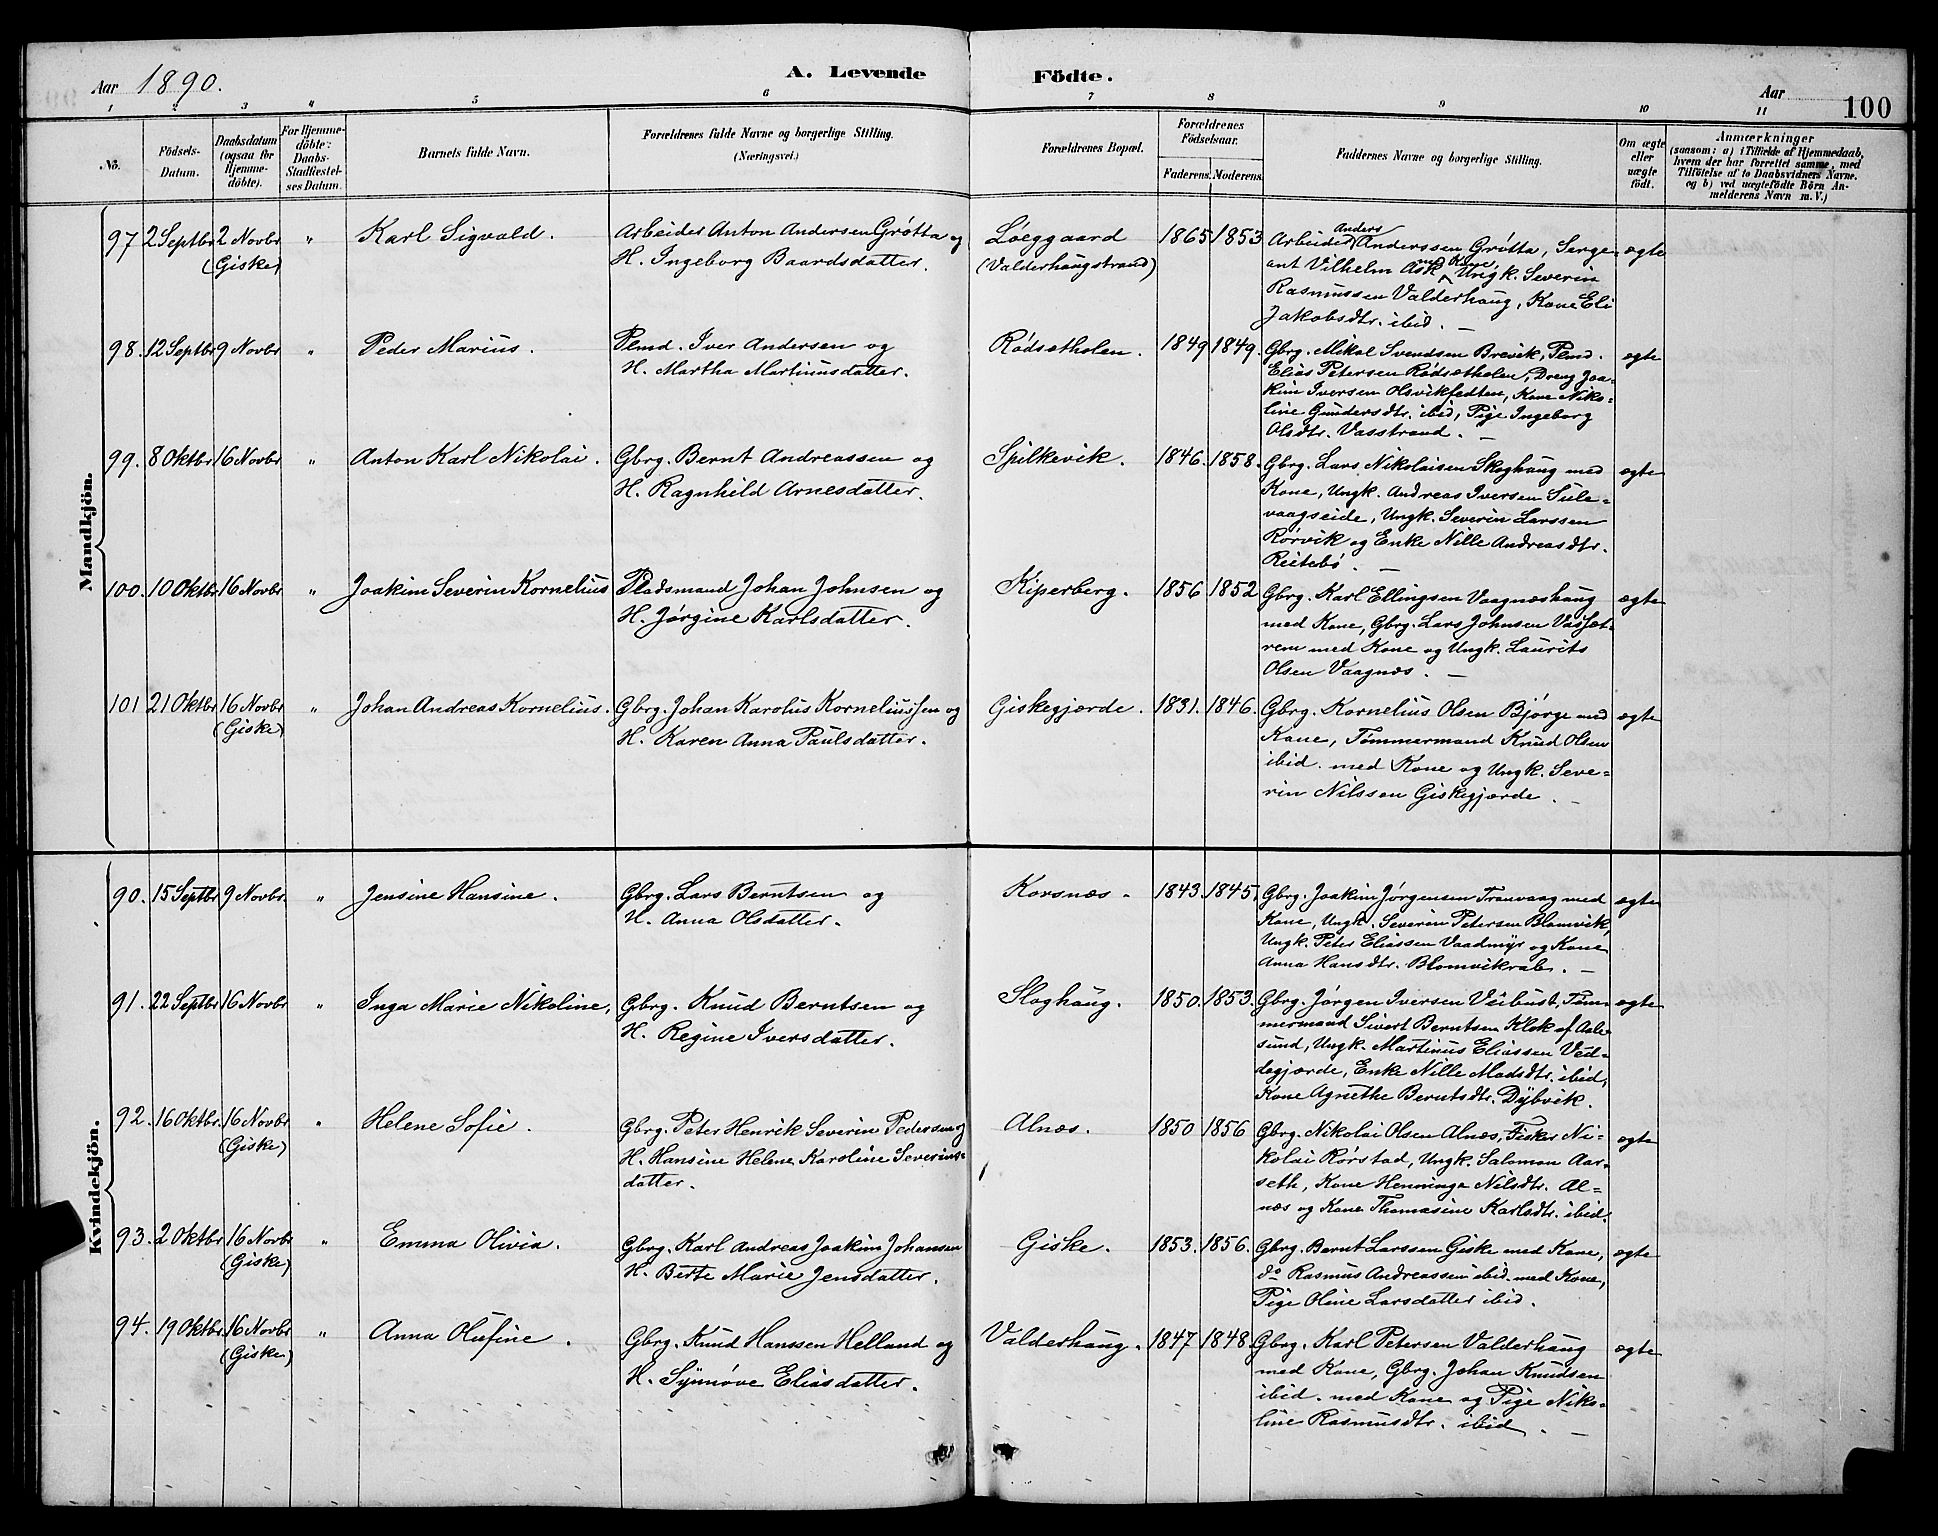 Aar 1890.
A. Levende Födte.
Aar
100
1 2 3 4 5 6 7 8 9 10 11
No.
Födsels-Datum.
Daabsdatum (ogsaa for Hjemmedöbte).
For Hjemmedöbte: Daabs-Stadfæstelses Datum.
Barnets fulde Navn.
Forældrenes fulde Navne og borgerlige Stilling.
(Næringsvei.)
Forældrenes Bopæl.
Forældrenes Födselsaar.
Faderens. Moderens.
Faddernes Navne og borgerlige Stilling.
Om ægte eller uægte födt.
Anmærkninger
(saasom: a) i Tilfælde af Hjemmedaab,
hvem der har forrettet samme, med
Tilföielse af to Daabsvidners Navne.
og b) ved uægtefödte Börn An-
melderens Navn m. V.)
Mandkjön.
97 2 Septbr 2 Novbr (Giske) " Karl Sigvald.
Arbeider Anton Andersen Grøtta og
H. Ingeborg Baardsdatter.
Løeggaard
(Valderhaugstrand)
1865 1853
Arbeider Anders Anderssen Grøtta, Serge-
ant Vilhelm Ask med Kone, Ungk. Severin
Rasmussen Valderhaug, Kone Eli
Jakobsdtr. ibid. —
ægte
98. 12 Septbr 9 Novbr " Peder Marius.
Plmd. Iver Andersen og
H. Martha Martinusdatter.
Rødsætholen.
1849 1849.
Gbrg. Mikal Svendsen Brevik, Plmd.
Elias Petersen Rødsætholen, Dreng Joa-
kim Iversen Olsvikfedten, Kone Niko-
line Gundersdtr. ibid, Pige Ingeborg
Olsdtr. Vasstrand. —
ægte
99. 8 Oktbr 16 Novbr " Anton Karl Nikolai.
Gbrg. Bernt Andreassen og
H. Ragnhild Arnesdatter.
Spilkevik.
1846. 1858.
Gbrg. Lars Nikolaisen Skoghaug med
Kone, Ungk. Andreas Iversen Sule-
vaagseide, Ungk. Severin Larssen
Rørvik og Enke Nille Andreasdtr.
Reitebø. —
ægte
100. 10 Oktbr 16 Novbr " Joakim Severin Kornelius
Pladsmand Johan Johnsen og
H. Jørgine Karlsdatter.
Kiperberg.
1856 1852
Gbrg. Karl Ellingsen Vaagnæshaug
med Kone, Gbrg. Lars Johnsen Vassæt-
rem med Kone og Ungk. Laurits
Olsen Vaagnæs. —
ægte
101 21 Oktbr 16 Novbr (Giske) " Johan Andreas Kornelius.
Gbrg. Johan Karolus Korneliussen og
H. Karen Anna Paulsdatter.
Giskegjærde.
1831. 1846.
Gbrg. Kornelius Olsen Bjørge med
Kone, Tømmermand Knud Olsen
ibid. med Kone og Ungk. Seve-
rin Nilssen Giskegjærde. —
ægte
Kvindekjön.
90. 15 Septbr 9 Novbr. " Jensine Hansine.
Gbrg. Lars Berntsen og
H. Anna Olsdatter.
Korsnæs.
1843. 1845.
Gbrg. Joakim Jørgensen Tranvaag med
Kone, Ungk. Severin Petersen Blomvik,
Ungk. Peter Eliassen Vaadmyr og Kone
Anna Hansdtr. Blomvikrab. —
ægte
91. 22 Septbr 16 Novbr " Inga Marie Nikoline,
Gbrg. Knud Berntsen og
H. Regine Iversdatter.
Sloghaug.
1850. 1853.
Gbrg. Jørgen Iversen Veibust, Tøm-
mermand Sivert Berntsen Klok af Aale-
sund, Ungk. Martinus Eliassen Ved-
degjærde, Enke Nille Madsdtr. ibid,
Kone Agnethe Berntsdtr. Dybvik.
ægte
92. 16 Oktbr. 16 Novbr (Giske) " Helene Sofie.
Gbrg. Peter Henrik Severin Pedersen og
H. Hansine Helene Karoline Severins-
datter.
Alnæs.
1850 1856
Gbrg. Nikolai Olsen Alnæs, Fisker Ni-
kolai Rørstad, Ungk. Salomon Aar-
seth, Kone Henninge Nilsdtr. Al-
næs og Kone Thomasine Karlsdtr. ibid.
ægte
93. 2 Oktbr 16 Novbr (Giske) " Emma Olivia.
Gbrg. Karl Andreas Joakim Johansen
H. Berte Marie Jensdatter.
Giske.
1853. 1856.
Gbrg. Bernt Larssen Giske med Kone,
do Rasmus Andreassen ibid. med Kone,
Pige Oline Larsdatter ibid.
ægte
94. 19 Oktbr. 16 Novbr (Giske) " Anna Olufine.
Gbrg. Knud Hanssen Helland og
H. Synnøve Eliasdatter.
Valderhaug.
1847 1848.
Gbrg. Karl Petersen Valderhaug
med Kone, Gbrg. Johan Knudsen
ibid. med Kone og Pige Niko-
line Rasmusdtr. ibid. —
ægte